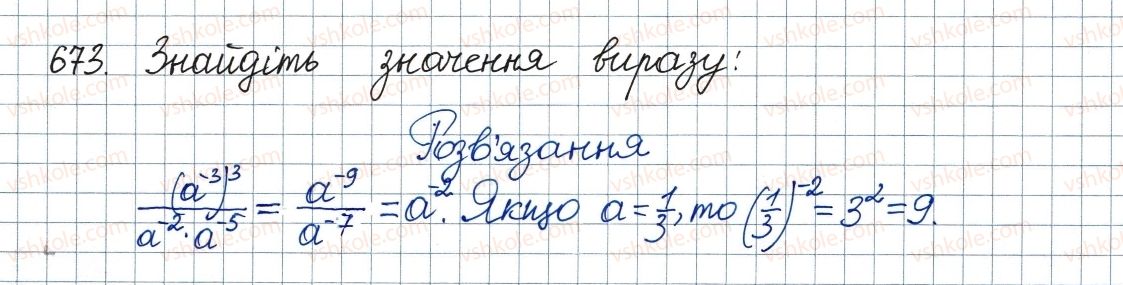 673. Знайдіть значення виразу:
Розв'язання
(a⁻³)³/(a⁻²·a⁻⁵) = a⁻⁹/a⁻⁷ = a⁻². Якщо a = 1/3, то (1/3)⁻² = 3² = 9.